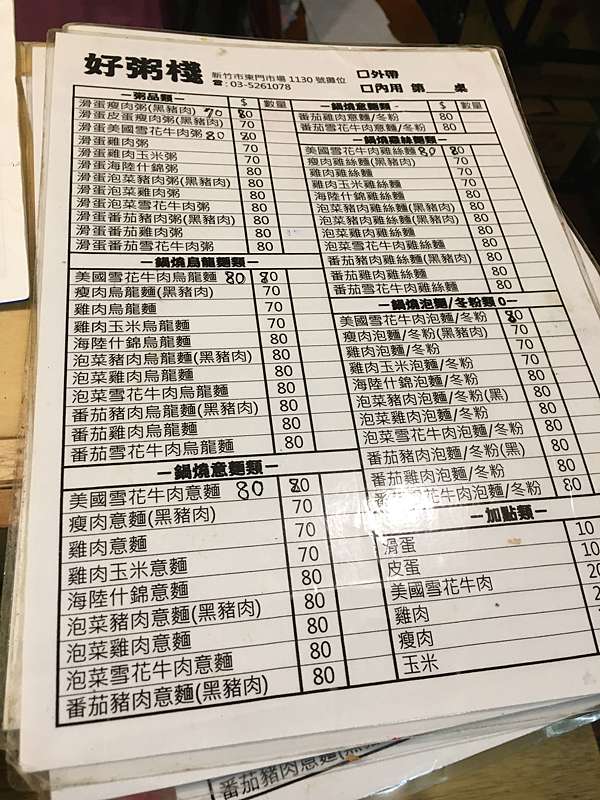 好粥棧 新竹市東門市場 1130 號攤位
☎:03-5261078
☐外帶
☐內用 第___桌
—粥品類— $ 數量
滑蛋瘦肉粥(黑豬肉) 70 80
滑蛋皮蛋瘦肉粥(黑豬肉) 70
滑蛋美國雪花牛肉粥 80 80
滑蛋雞肉粥 70
滑蛋雞肉玉米粥 70
滑蛋海陸什錦粥 80
滑蛋泡菜豬肉粥(黑豬肉) 80
滑蛋泡菜雞肉粥 80
滑蛋泡菜雪花牛肉粥 80
滑蛋番茄豬肉粥(黑豬肉) 80
滑蛋番茄雞肉粥 80
滑蛋番茄雪花牛肉粥 80
—鍋燒烏龍麵類—
美國雪花牛肉烏龍麵 80 80
瘦肉烏龍麵(黑豬肉) 70
雞肉烏龍麵 70
雞肉玉米烏龍麵 70
海陸什錦烏龍麵 80
泡菜豬肉烏龍麵(黑豬肉) 80
泡菜雞肉烏龍麵 80
泡菜雪花牛肉烏龍麵 80
番茄豬肉烏龍麵(黑豬肉) 80
番茄雞肉烏龍麵 80
番茄雪花牛肉烏龍麵 80
—鍋燒意麵類—
美國雪花牛肉意麵 80 80
瘦肉意麵(黑豬肉) 70
雞肉意麵 70
雞肉玉米意麵 70
海陸什錦意麵 80
泡菜豬肉意麵(黑豬肉) 80
泡菜雞肉意麵 80
泡菜雪花牛肉意麵 80
番茄豬肉意麵(黑豬肉) 80
—鍋燒意麵類- $ 數量
番茄雞肉意麵/冬粉 80
番茄雪花牛肉意麵/冬粉 80
—鍋燒雞絲麵類—
美國雪花牛肉雞絲麵 80 80
瘦肉雞絲麵(黑豬肉) 70
雞肉雞絲麵 70
雞肉玉米雞絲麵 70
海陸什錦雞絲麵 80
泡菜豬肉雞絲麵(黑豬肉) 80
泡菜豬肉雞絲麵(黑豬肉) 80
泡菜雪花牛肉雞絲麵 80
番茄豬肉雞絲麵(黑豬肉) 80
番茄雞肉雞絲麵 80
番茄雪花牛肉雞絲麵 80
—鍋燒泡麵/冬粉類 0—
美國雪花牛肉泡麵/冬粉 80
瘦肉泡麵/冬粉(黑豬肉) 70
雞肉泡麵/冬粉 70
雞肉玉米泡麵/冬粉 70
海陸什錦泡麵/冬粉 80
泡菜豬肉泡麵/冬粉(黑) 80
泡菜雞肉泡麵/冬粉 80
泡菜雪花牛肉泡麵/冬粉 80
番茄豬肉泡麵/冬粉(黑) 80
番茄雞肉泡麵/冬粉 80
番茄雪花牛肉泡麵/冬粉 80
—加點類—
滑蛋 10
皮蛋 10
美國雪花牛肉
雞肉
瘦肉
玉米
番茄豬肉意麵(黑豬肉)